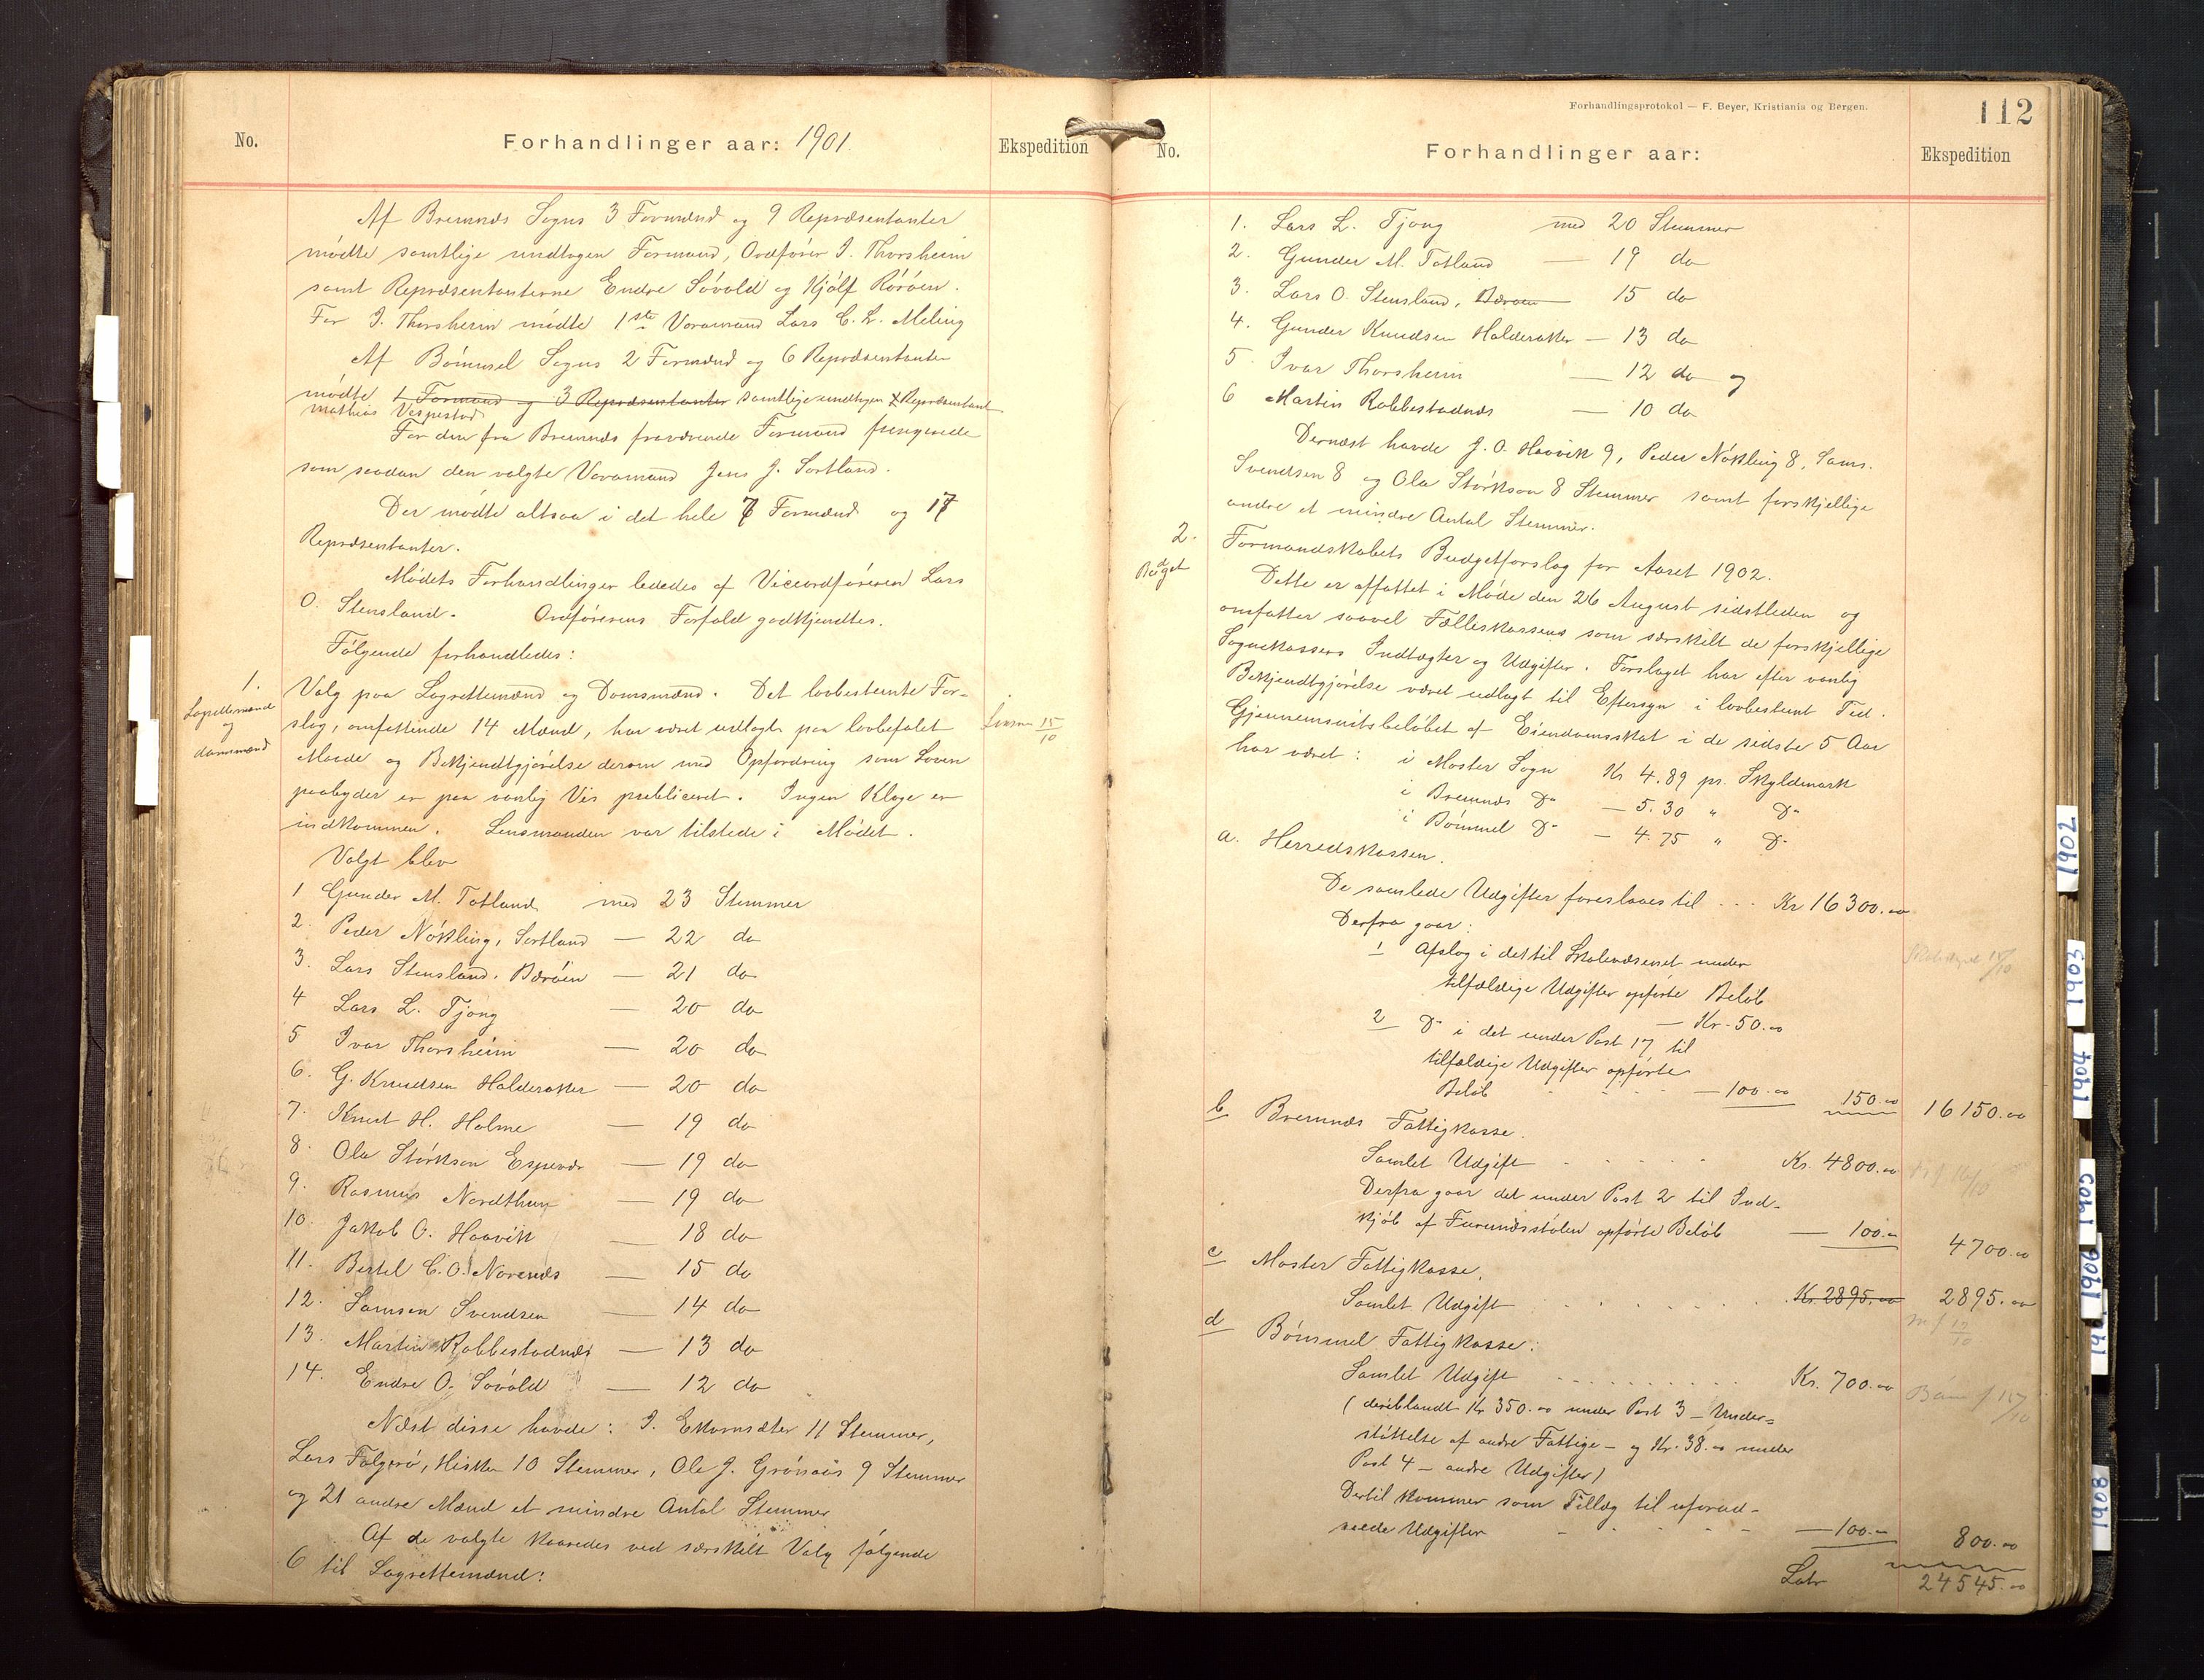 No.
Forhandlinger aar: 1901.
Ekspedition
Af Bremnæs Sogns 3 Formænd og 9 Repræsentanter
mødte samtlige undtagen Formand, Ordfører I. Thorsheim
samt Repræsentanterne Endre Søvold og Kjølf Rörøen.
For I. Thorsheim mødte 1ste Varamand Lars C. L. Meling
Af Bömmel Sogns 2 Formænd og 6 Repræsentanter
mødte 1 Formand og 3 Repræsentanter samtlige undtagen Repræsentant
Mathias Vespestad
For den fra Bremnæs fraværende Formand fungerede
som saadan den valgte Varamand Jens J. Sortland.
Der mødte altsaa i det hele 7 Formænd og 17
Repræsentanter.
Mødets Forhandlinger lededes af Viceordføreren Lars
O. Stensland. Ordførerens Forfald godkjendtes.
Følgende forhandledes:
1.
Lagrettemænd
og
domsmænd
Valg paa Lagrettemænd og Domsmænd. Det lovbestemte For-
slag, omfattende 14 Mænd, har været udlagt paa lovbefalet
Maade og Bekjendtgjørelse derom med Opfordring som Loven
paabyder er paa vanlig Vis publiceret. Ingen Klage er
indkommen. Lensmanden var tilstede i Mødet.
15/10
Valgt blev
1 Gunder M. Totland med 23 Stemmer
2. Peder Nökling, Sortland — 22 do
3. Lars Stensland. Børöen — 21 do
4 Lars L. Tjong — 20 do
5 Ivar Thorsheim — 20 do
6. G. Knudsen Halderaker — 20 do
7. Knut H. Holme — 19 do
8. Ola Störkson Espevær — 19 do
9. Rasmus Nordthun — 19 do
10. Jakob O. Haavik — 18 do
11. Bertel C. O. Norenæs — 15 do
12. Samson Svendsen — 14 do
13. Martin Robbestadnæs — 13 do
14. Endre O. Søvold — 12 do
Næst disse havde: I. Ekornsæter 11 Stemmer,
Lars Folgerö, Hisken 10 Stemmer, Ole J. Grönaas 9 Stemmer
og 21 andre Mænd et mindre Antal Stemmer
Af de valgte kaaredes ved særskilt Valg følgende
6 til Lagrettemænd:
Forhandlingsprotokol — F. Beyer, Kristiania og Bergen.
112
No.
Forhandlinger aar:
Ekspedition
1. Lars L. Tjong med 20 Stemmer
2. Gunder M. Totland — 19 do
3. Lars O. Stensland, Børöen — 15 do
4. Gunder Knudsen Halderaker — 13 do
5 Ivar Thorsheim — 12 do og
6 Martin Robbestadnæs — 10 do
Dernæst havde J. O. Haavik 9, Peder Nökling 8, Sams.
Svendsen 8 og Ola Störkson 8 Stemmer samt forskjellige
andre et mindre Antal Stemmer.
2.
Budget
Formandskabets Budgetforslag for Aaret 1902.
Dette er affattet i Møde den 26 August sidstleden og
omfatter saavel Fælleskassens som særskilt de forskjellige
Sognekassers Indtægter og Udgifter. Forslaget har efter vanlig
Bekjendtgjørelse været udlagt til Eftersyn i lovbestemt Tid.
Gjennemsnitsbeløbet af Eiendomsskat i de sidste 5 Aar
har været: i Moster Sogn Kr 4.89 pr. Skyldmark
i Bremnæs Do — 5.30 " Do
i Bömmel Do — 4.75 " Do
a. Herredskassen.
De samlede Udgifter foreslaaes til ... Kr 16300.00
Derfra gaar:
1 Afslag i det til Skolevæsenet under
tilfældige Udgifter opførte Beløb
— Kr. 50.00
2 Do i det under Post 17 til
tilfældige Udgifter opførte
Beløb — 100.00 150.00 16150.00
b Bremnæs Fattigkasse.
Samlet Udgift Kr. 4800.00
Derfra gaar det under Post 2 til Ind-
kjøb af Furunæsstølen opførte Beløb — 100.- 4700.00
c Moster Fattigkasse.
Samlet Udgift Kr. 2895.00 2895.00
d Bömmel Fattigkasse:
Samlet Udgift Kr. 700.00
(deriblandt Kr 350.00 under Post 3 — Under=
støttelse af andre Fattige — og Kr. 38.00 under
Post 4 — andre Udgifter)
Dertil kommer som Tillæg til uforud-
seede Udgifter — 100.- 800.00
Lats 24545.00
1902
1903
1904
1905
1906
1908